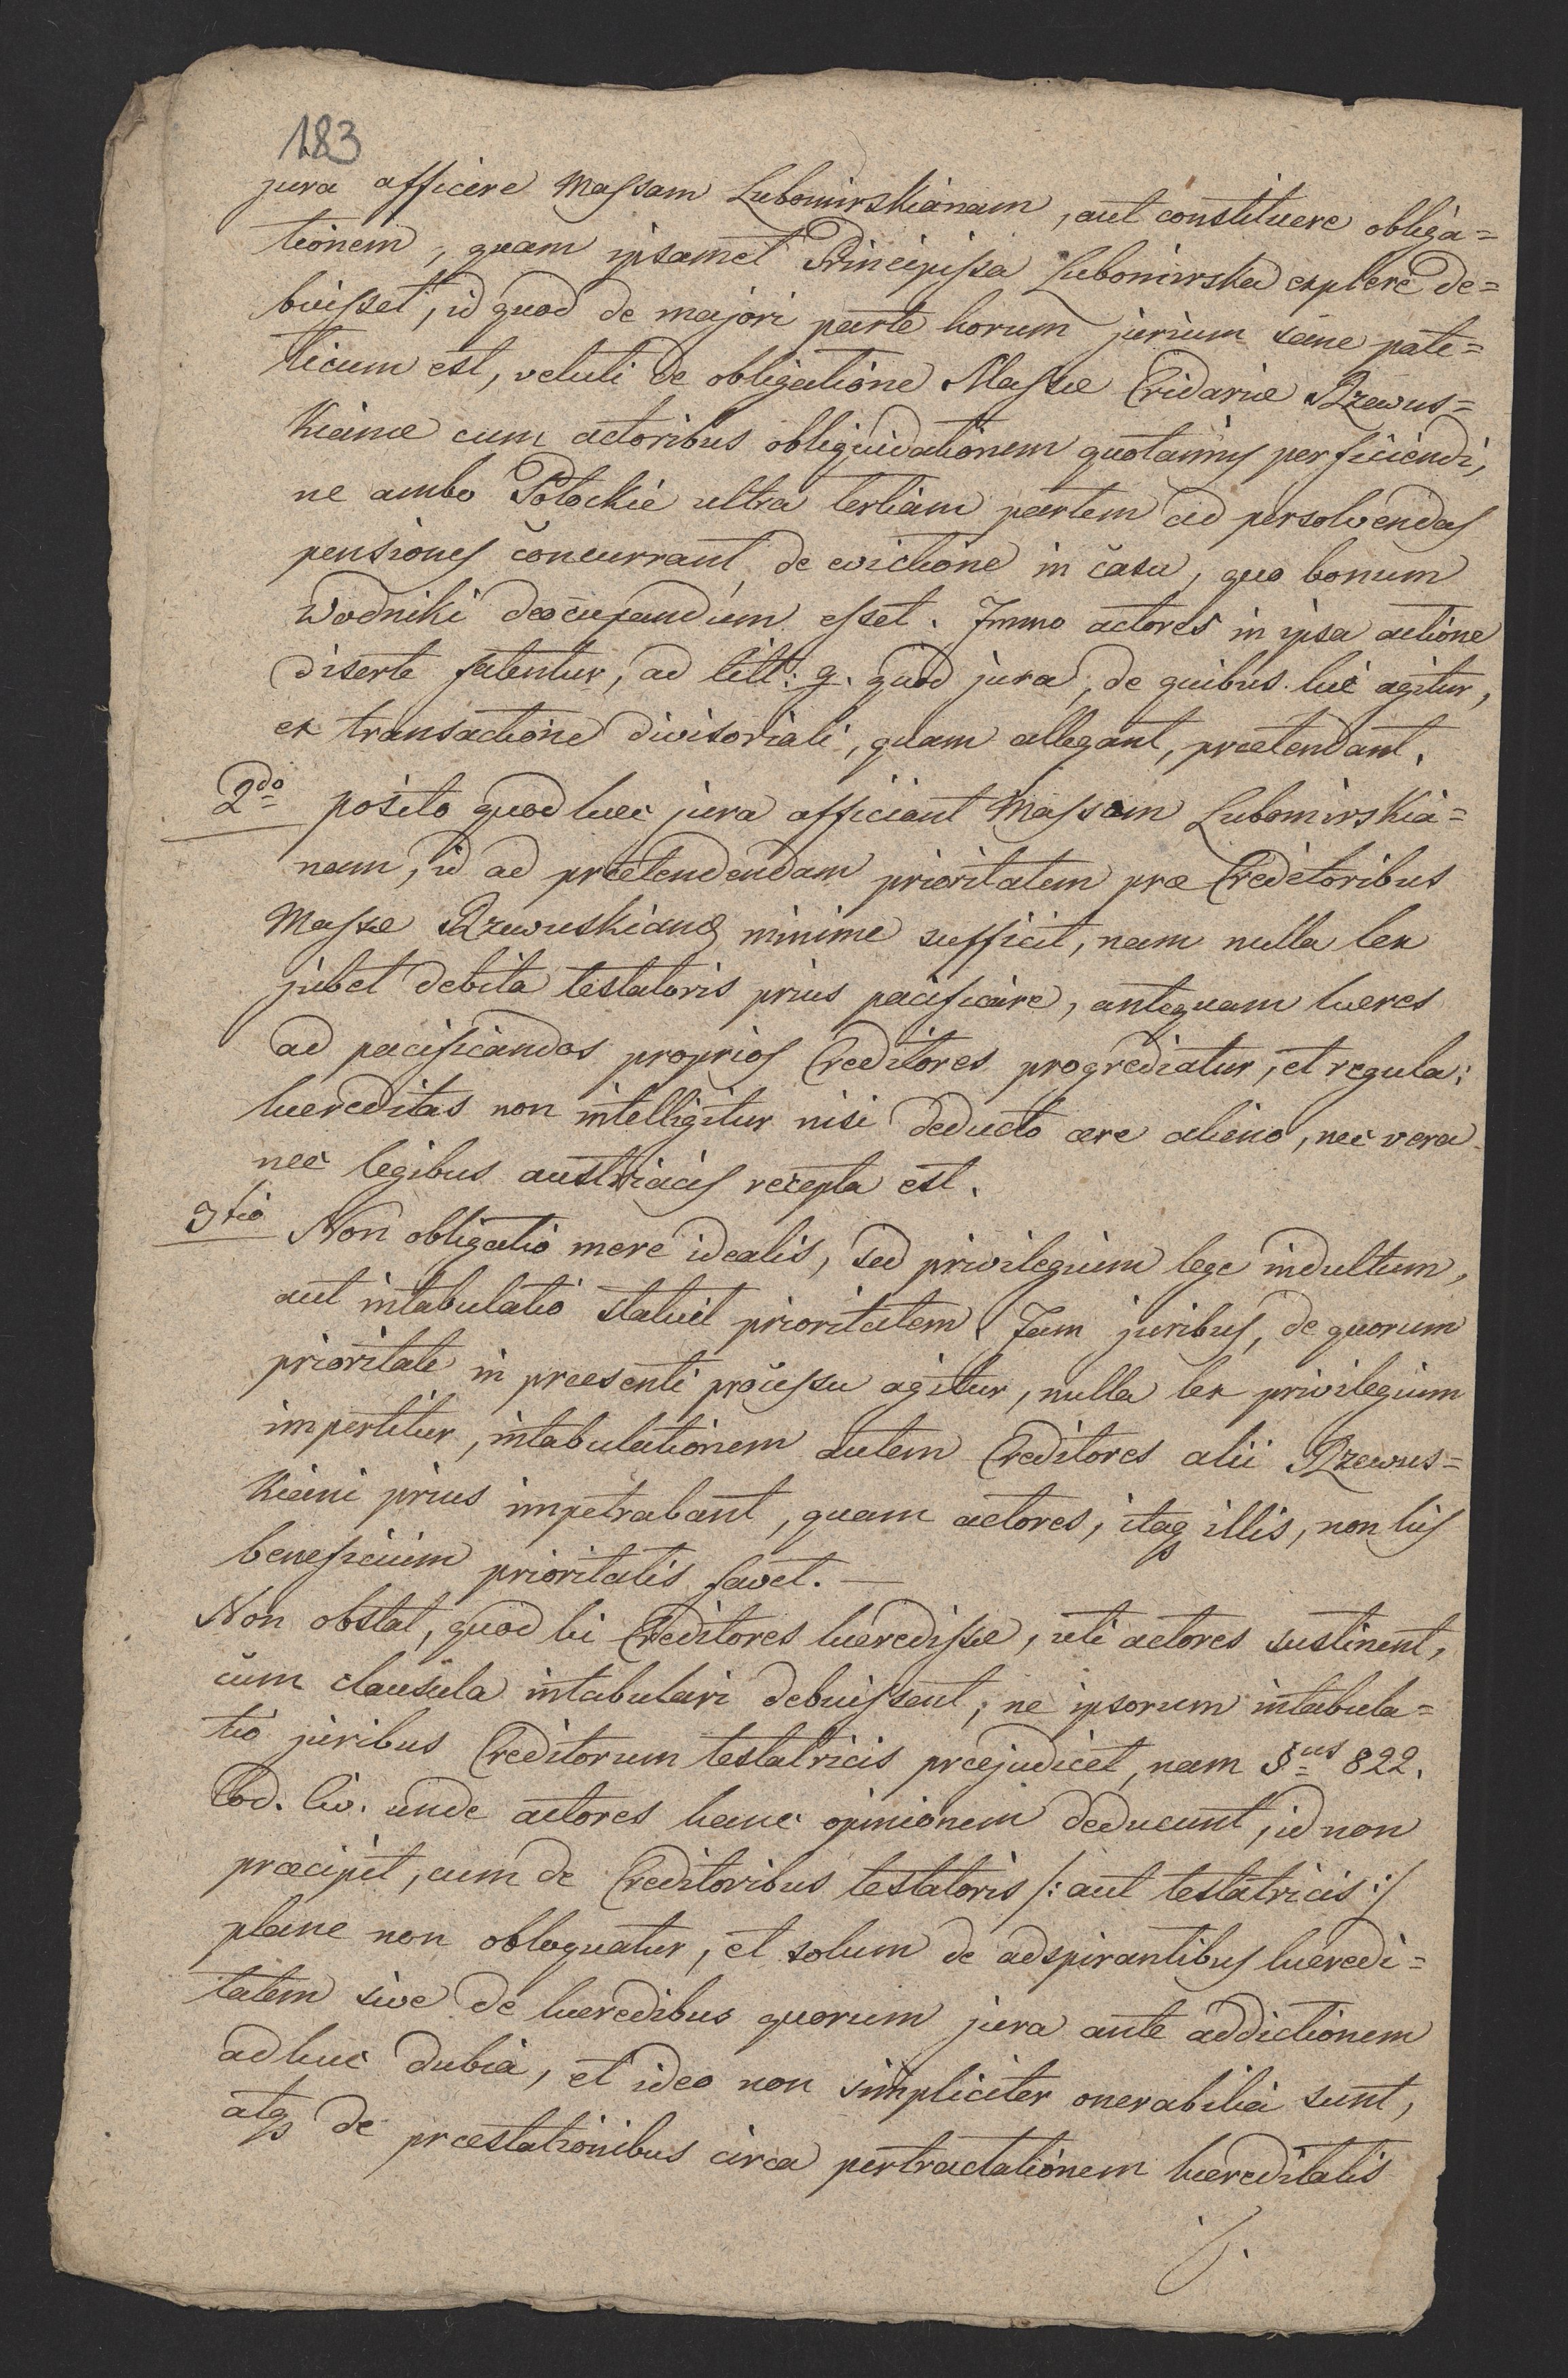 183
jura afficere Massam Lubomirskianam, aut constituere obliga=
tionem, quam ipsamet Principissa Lubomirska explere de=
buisset, id quod de majori parte horum jurium sane pate=
ticum est, veluti de obligatione Massæ Cridariæ Rzewus=
kianæ cum actoribus obliquidationem quotannis perficiendi,
ne ambo Potockie ultra tertiam partem ad persolvendas
pensiones concurrant, de evictione in casu, quo bonum
Wodniki deocupandum esset. Immo actores in ipsa actione
diserte fatentur, ad litt: g. quod jura, de quibus hic agitur,
ex transactione divisoriali, quam allegant, prætendant.
2do posito quod hæc jura afficiant Massam Lubomirskia=
nam, id ad prætendendam prioritatem præ Creditoribus
Massæ Rzewuskianæ minime sufficit, nam nulla lex
jubet debita testatoris prius pacificare, antequam hæres
ad pacificandos proprios Creditores progrediatur, et regula:
hæreditas non intelligitur nisi deducto ære alieno, nec vera
nec legibus austriacis recepta est.
3tio Non obligatio mere idealis, sed privilegium lege indultum,
aut intabulatio statuit prioritatem. Jam juribus, de quorum
prioritate in præsenti processu agitur, nulla lex privilegium
impertitur, intabulationem autem Creditores alii Rzewus=
kiani prius impetrabant, quam actores, itaq illis, non his
beneficium prioritatis favet. —
Non obstat, quod hi Creditores hæredissæ, uti actores sustinent,
cum clausula intabulari debuissent, ne ipsorum intabula=
tio juribus Creditorum testatricis præjudicet, nam §us 822.
Cod. Civ. unde actores hanc opinionem deducunt, id non
præcipit, cum de Creditoribus testatoris /: aut testatricis :/
plane non obloquatur, et solum de adspirantibus hæredi=
tatem sive de hæredibus quorum jura ante addictionem
adhuc dubia, et ideo non simpliciter onerabilia sunt,
atq de præstationibus circa pertractationem hæreditatis